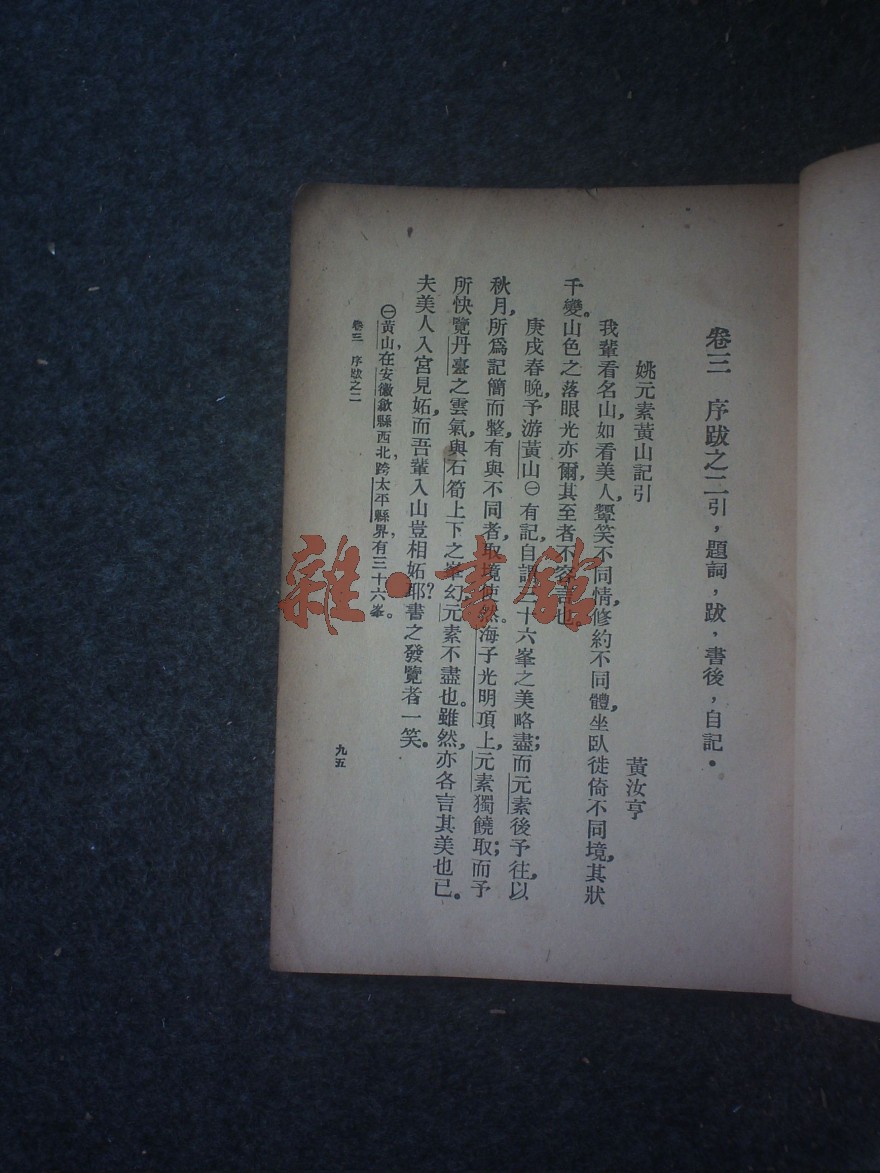 卷三　序跋之二引，題詞，跋，書後，自記．
姚元素黃山記引
黃汝亨
我輩看名山，如看美人，顰笑不同情，修約不同體，坐臥徙倚不同境，其狀
千變。山色之落眼光亦爾，其至者不容言也。
庚戌春晚，予游黃山㊀有記，自謂三十六峯之美略盡；而元素後予往，以
秋月，所爲記簡而整，有與不同者，取境使然。海子光明頂上，元素獨饒取；而予
所快覽丹臺之雲氣，與石筍上下之峯幻，元素不盡也。雖然，亦各言其美也已。
夫美人入宮見妬，而吾輩入山，豈相妬耶？書之發覽者一笑。
㊀黃山，在安徽歙縣西北，跨太平縣界，有三十六峯。
卷三　序跋之二
九五
雜·書館